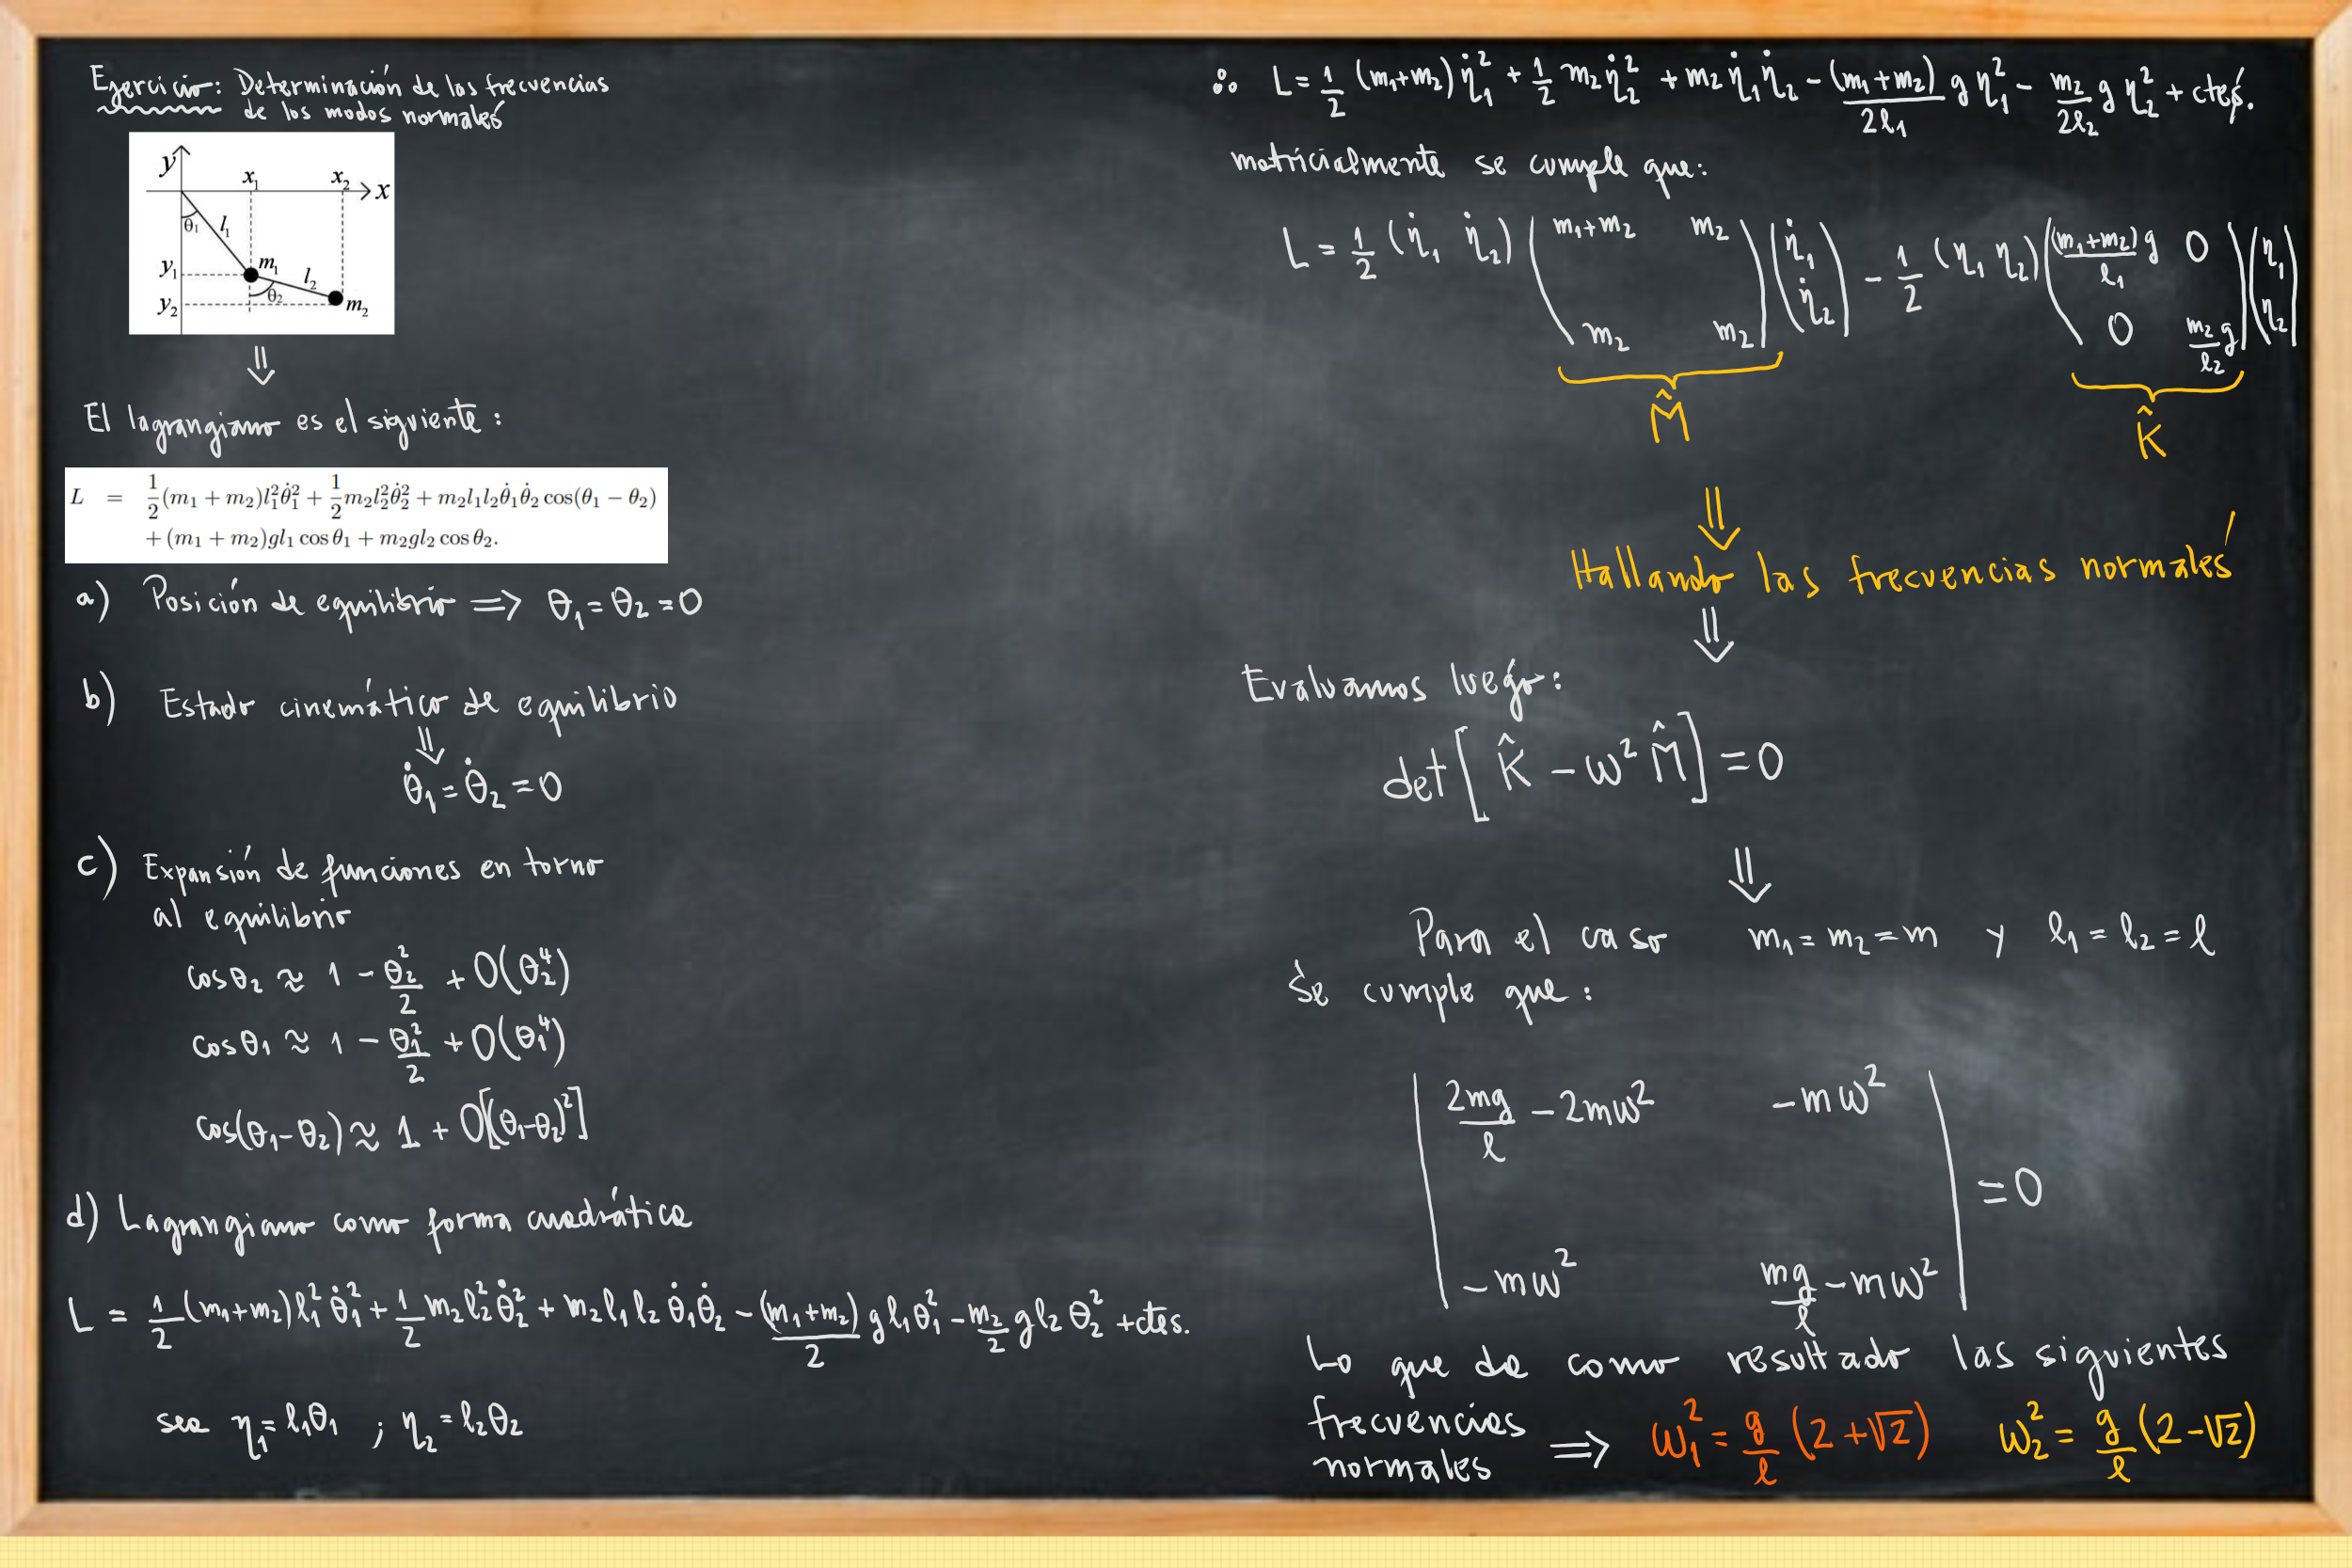 Ejercicio: Determinación de las frecuencias
de los modos normales
y
x₁ x₂ x
θ₁ l₁
y₁ m₁ l₂
θ₂
y₂ m₂
⇓
El lagrangiano es el siguiente:
L = 1/2 (m₁ + m₂)l₁²θ̇₁² + 1/2 m₂l₂²θ̇₂² + m₂l₁l₂θ̇₁θ̇₂ cos(θ₁ − θ₂)
+ (m₁ + m₂)gl₁ cos θ₁ + m₂gl₂ cos θ₂.
a) Posición de equilibrio ⇒ θ₁ = θ₂ = 0
b) Estado cinemático de equilibrio
⇓
θ̇₁ = θ̇₂ = 0
c) Expansión de funciones en torno
al equilibrio
cosθ₂ ≈ 1 − θ₂²/2 + O(θ₂⁴)
cosθ₁ ≈ 1 − θ₁²/2 + O(θ₁⁴)
cos(θ₁−θ₂) ≈ 1 + O[(θ₁−θ₂)²]
d) Lagrangiano como forma cuadrática
L = 1/2 (m₁+m₂)l₁²θ̇₁² + 1/2 m₂l₂²θ̇₂² + m₂l₁l₂θ̇₁θ̇₂ − (m₁+m₂)/2 gl₁θ₁² − m₂/2 gl₂θ₂² + ctes.
sea η₁ = l₁θ₁ ; η₂ = l₂θ₂
∴ L = 1/2 (m₁+m₂)η̇₁² + 1/2 m₂η̇₂² + m₂η̇₁η̇₂ − (m₁+m₂)/2l₁ gη₁² − m₂/2l₂ gη₂² + ctes.
matricialmente se cumple que:
L = 1/2 (η̇₁ η̇₂) (m₁+m₂ m₂ ; m₂ m₂) (η̇₁ ; η̇₂) − 1/2 (η₁ η₂) ((m₁+m₂)/l₁ g 0 ; 0 m₂/l₂ g) (η₁ ; η₂)
M̂ K̂
⇓
Hallando las frecuencias normales
⇓
Evaluamos luego:
det[K̂ − ω²M̂] = 0
⇓
Para el caso m₁ = m₂ = m y l₁ = l₂ = l
Se cumple que:
| 2mg/l − 2mω² −mω² |
= 0
| −mω² mg/l − mω² |
Lo que da como resultado las siguientes
frecuencias
normales ⇒ ω₁² = g/l (2 + √2) ω₂² = g/l (2 − √2)